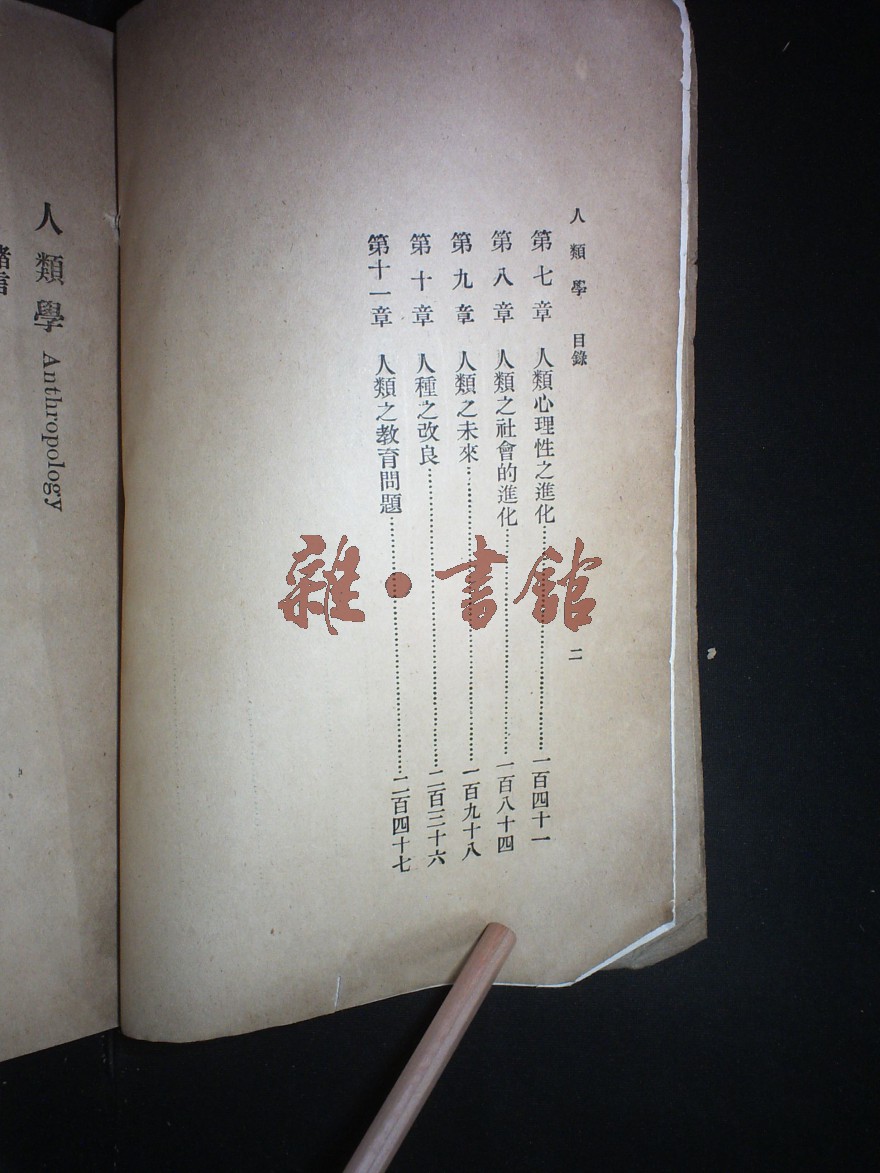 人類學 目錄 二
第七章 人類心理性之進化……一百四十一
第八章 人類之社會的進化……一百八十四
第九章 人類之未來……一百九十八
第十章 人種之改良……二百三十六
第十一章 人類之教育問題……二百四十七
人類學 Anthropology
緒言
雜·書館